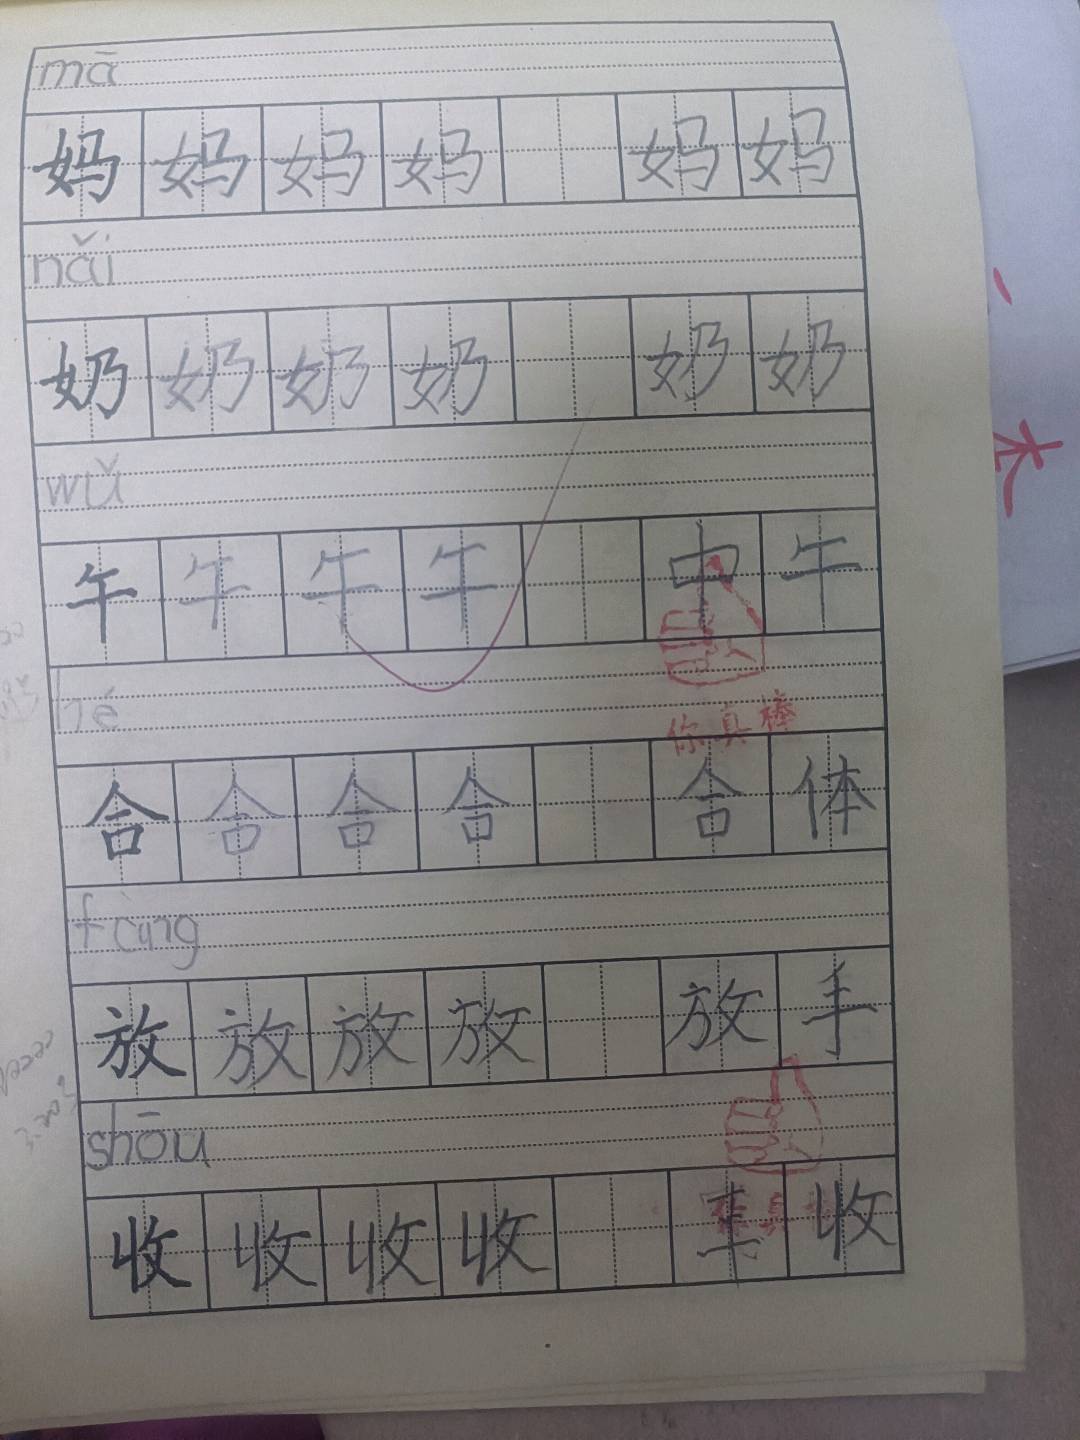 mā
妈 妈 妈 妈 妈 妈
nǎi
奶 奶 奶 奶 奶 奶
wǔ
午 午 午 午 中 午
hé
合 合 合 合 合 体
你真棒
fàng
放 放 放 放 放 手
shōu
收 收 收 收 收